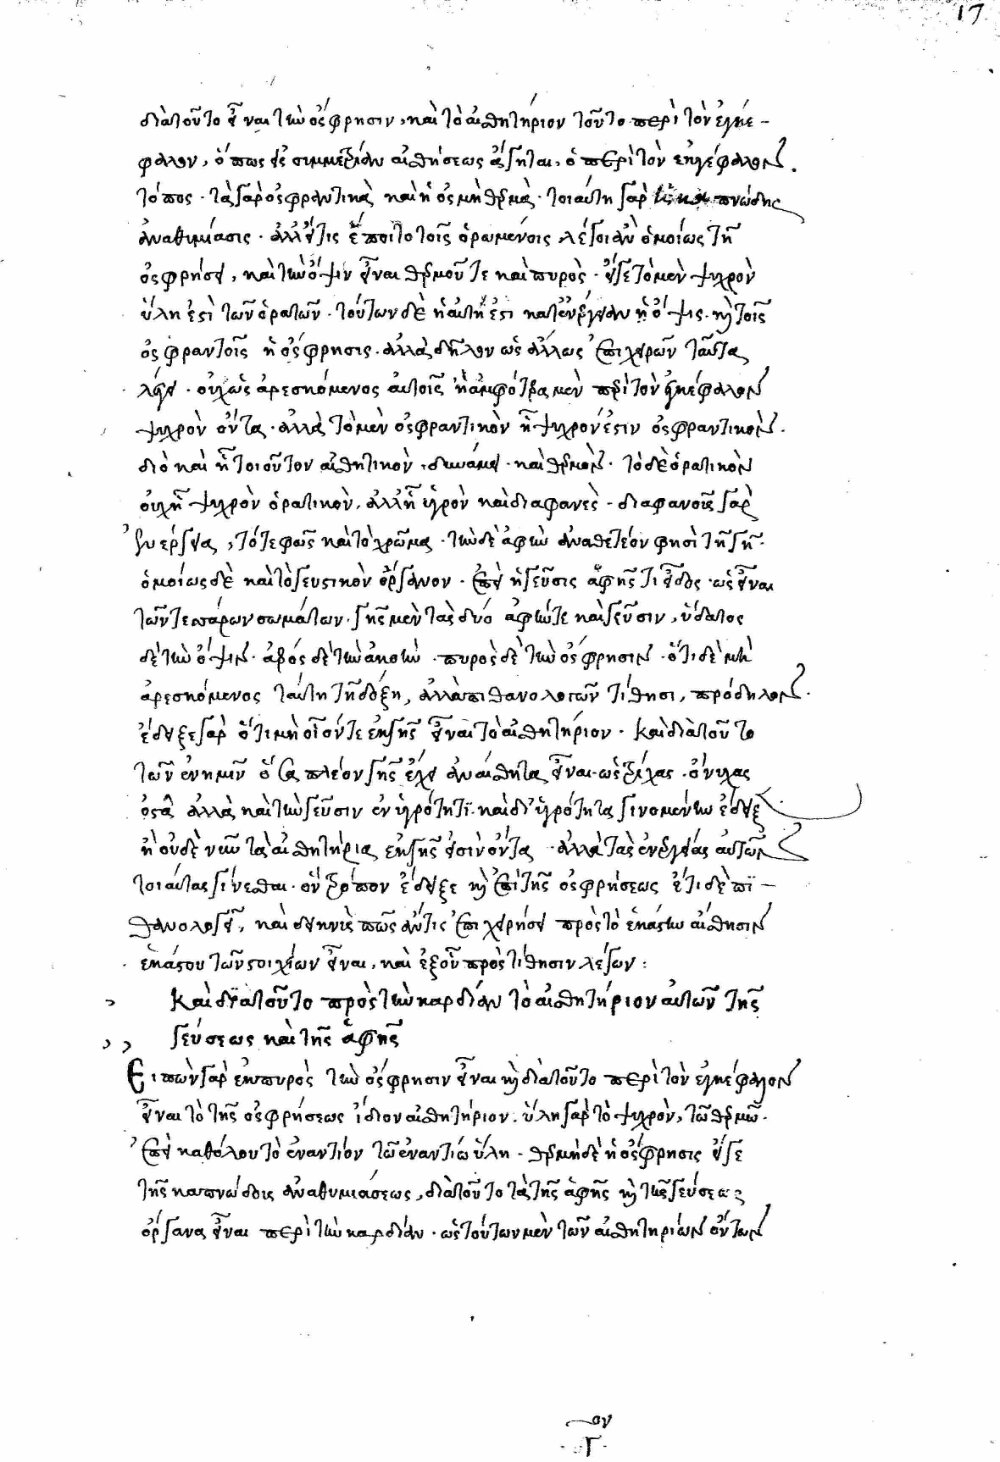 17
διὰ τοῦτο εἶναι τὴν ὄσφρησιν, καὶ τὸ αἰσθητήριον τοῦτο περὶ τὸν ἐγκέ-
φαλον, ὅπως εἰς συμμετρίαν αἰσθήσεως ἄγηται, ὁ περὶ τὸν ἐγκέφαλον
τόπος. τὰ γὰρ ὀσφραντικὰ καὶ ἡ ὀσμὴ θερμά. τοιαύτη γὰρ ἡ καπνώδης
ἀναθυμίασις. ἀλλ' εἴ τις ἕποιτο τοῖς ὁρωμένοις, λέγοι ἂν ὁμοίως τῇ
ὀσφρήσει, καὶ τὴν ὄψιν εἶναι θερμοῦ τε καὶ πυρός. εἴγε τὸ μὲν ψυχρὸν
ὕλη ἐστὶ τῶν ὁρατῶν. τούτων δὲ ἡ αὐτή ἐστι κατ' ἐνέργειαν ἡ ὄψις. καὶ τοῖς
ὀσφραντοῖς ἡ ὄσφρησις. ἀλλὰ δῆλον ὡς ἄλλως ἐπιχειρῶν ταῦτα
λέγει. οὐχ ὡς ἀρεσκόμενος αὐτοῖς. ἢ ἀμφότερα μὲν περὶ τὸν ἐγκέφαλον
ψυχρὸν ὄντα. ἀλλὰ τὸ μὲν ὀσφραντικὸν ᾗ ψυχρόν ἐστιν ὀσφραντικόν.
διὸ καὶ ᾗ τοιοῦτον αἰσθητικὸν, δυνάμει καὶ θερμόν. τὸ δὲ ὁρατικὸν
οὐχ ᾗ ψυχρὸν ὁρατικὸν, ἀλλ' ᾗ ὑγρὸν καὶ διαφανές. διαφανοῦς γὰρ
ἐνέργεια, τό τε φῶς καὶ τὸ χρῶμα. τὴν δὲ ἁφὴν ἀναθετέον φησὶ τῇ γῇ.
ὁμοίως δὲ καὶ τὸ γευστικὸν ὄργανον. ἐπεὶ ἡ γεῦσις ἁφῆς τι εἶδος. ὡς εἶναι
τῶν τεσσάρων σωμάτων. γῆς μὲν τὰς δύο ἁφήν τε καὶ γεῦσιν, ὕδατος
δὲ τὴν ὄψιν. ἀέρος δὲ τὴν ἀκοὴν. πυρὸς δὲ τὴν ὄσφρησιν. ὅτι δὲ μὴ
ἀρεσκόμενος ταύτῃ τῇ δόξῃ, ἀλλὰ πιθανολογῶν τίθησι, πρόδηλον.
ἔδειξε γὰρ ὅτι μὴ οἷόν τε ἐκ γῆς εἶναι τὸ αἰσθητήριον. καὶ διὰ τοῦτο
τῶν ἐν ἡμῖν ὅσα πλέον γῆς ἔχει ἀναίσθητα εἶναι. ὡς τρίχας. ὄνυχας
ὀστᾶ. ἀλλὰ καὶ τὴν γεῦσιν ἐν ὑγρότητι. καὶ δι' ὑγρότητα γινομένην ἔδειξεν
ἢ οὐδὲ νῦν τὰ αἰσθητήρια ἐκ γῆς εἰσὶν ὄντα. ἀλλὰ τὰς ἐνεργείας αὐτῶν
τοιαύτας γίνεσθαι. ὃν τρόπον ἔδειξε καὶ ἐπὶ τῆς ὀσφρήσεως. ἔτι δὲ πι-
θανολογεῖ, καὶ δείκνυσι πῶς ἄν τις ἐπιχειρήσει πρὸς τὸ ἑκάστην αἴσθησιν
ἑκάστου τῶν στοιχείων εἶναι, καὶ ἐξ οὗ προστίθησιν λέγων:
Καὶ διὰ τοῦτο πρὸς τὴν καρδίαν τὸ αἰσθητήριον αὐτῶν τῆς
γεύσεως καὶ τῆς ἁφῆς
Εἰπὼν γὰρ ἐκ πυρὸς τὴν ὄσφρησιν εἶναι καὶ διὰ τοῦτο περὶ τὸν ἐγκέφαλον
εἶναι τὸ τῆς ὀσφρήσεως ἴδιον αἰσθητήριον. ὕλη γὰρ τὸ ψυχρὸν, τῷ θερμῷ.
ἐπεὶ καθόλου τὸ ἐναντίον τῷ ἐναντίῳ ὕλη. θερμὴ δὲ ἡ ὄσφρησις εἴγε
τῆς καπνώδους ἀναθυμιάσεως, διὰ τοῦτο τὰ τῆς ἁφῆς καὶ τῆς γεύσεως
ὄργανα εἶναι περὶ τὴν καρδίαν. ὡς τούτων μὲν τῶν αἰσθητηρίων ὄντων